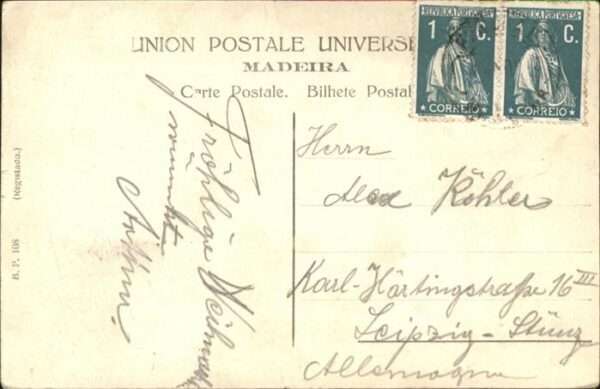 UNION POSTALE UNIVERSE
MADEIRA
Carte Postale. Bilhete Postal
REPUBLICA PORTUGUESA
1 C.
CORREIO
REPUBLICA PORTUGUESA
1 C.
CORREIO
Fröhliche Weihnacht
wünscht
Arthur.
Herrn
Alex Köhler
Karl-Härtingstraße 16 III
Leipzig-Stünz
Allemagne
(Registada.)
B. P. 108